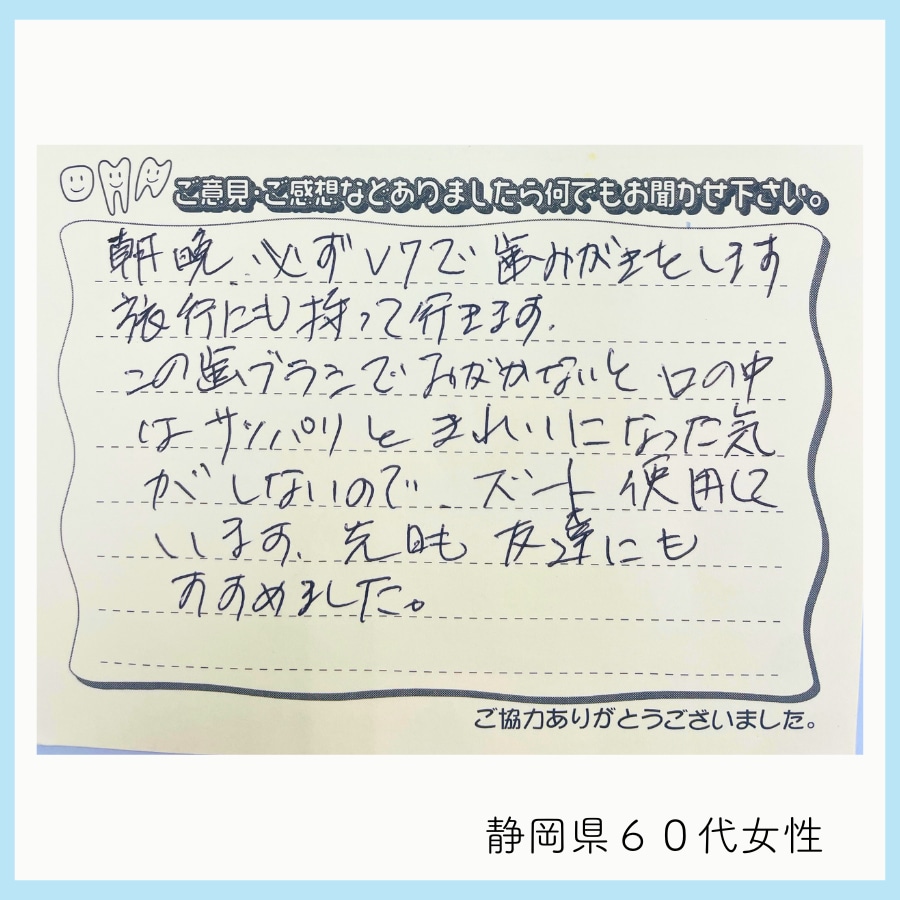 ご意見・ご感想などありましたら何でもお聞かせ下さい。
朝晩、必ずV7で歯みがきをします
旅行にも持って行きます。
この歯ブラシでみがかないと口の中
はサッパリときれいになった気
がしないので、ズート使用して
います、先日も友達にも
すすめました。
ご協力ありがとうございました。
静岡県６０代女性